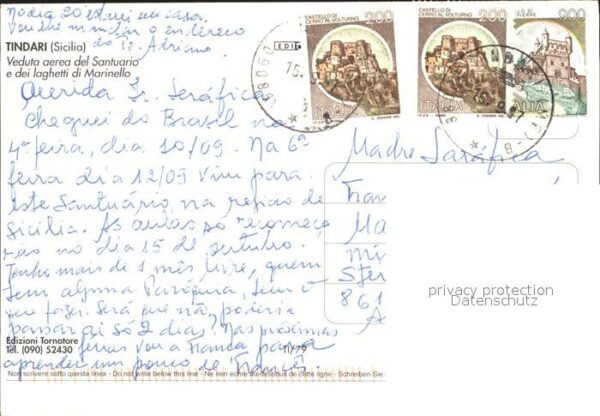 No dia 20 estarei em casa.
Tindari (Sicilia)
Veduta aerea del Santuario
e dei laghetti di Marinello
Querida Ir. Seráfica
Cheguei do Brasil na
4ª feira, dia 10/09. Na 6ª
feira dia 12/09 vim para
este Santuário, na região da
Sicilia. As aulas só recomeça
rão no dia 15 de outubro.
Tenho mais de 1 mês livre, quem
tem alguma Paróquia, tem o
que fazer. Será que não poderia
passar aí só 2 dias. Nas próximas
férias vou a França para
aprender um pouco de Francês.
Edizioni Tornatore
Tel. (090) 52430
TI/79
Non scrivere sotto questa linea - Do not write below this line - Ne rien écrire au-dessous de cette ligne - Schreiben Sie
CASTELLO DI
CERRO AL VOLTURNO
200
ITALIA
CASTELLO DI
CERRO AL VOLTURNO
200
ITALIA
ITALIA
Madre Saráfica
Fran
Ma
Ster
861
A
privacy protection
Datenschutz